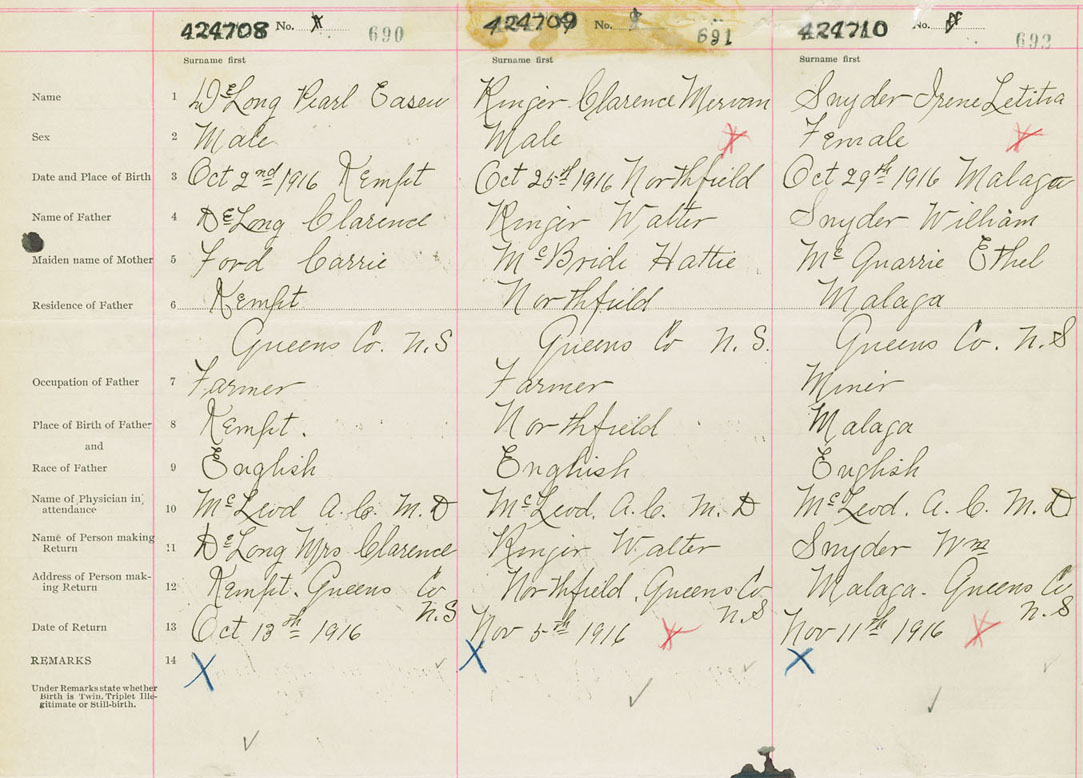 424708 No. 690 424709 No. 691 424710 No. 692
Surname first Surname first Surname first
Name 1 DeLong Pearl Ringer Clarence Mervan Snyder Irene Letitia
Sex 2 Male Male Female
Date and Place of Birth 3 Oct 2nd 1916 Kempt Oct 25th 1916 Northfield Oct 29th 1916 Malaga
Name of Father 4 DeLong Clarence Ringer Walter Snyder William
Maiden name of Mother 5 Ford Carrie McBride Hattie McGuarrie Ethel
Residence of Father 6 Kempt Northfield Malaga
Queens Co. N.S Queens Co N.S. Queens Co. N.S
Occupation of Father 7 Farmer Farmer Miner
Place of Birth of Father 8 Kempt. Northfield Malaga
and
Race of Father 9 English English English
Name of Physician in attendance 10 McLeod A.C. M.D McLeod. A.C. M.D McLeod. A.C. M.D
Name of Person making Return 11 DeLong Mrs Clarence Ringer Walter Snyder Wm
Address of Person mak-
ing Return 12 Kempt. Queens Co N.S Northfield. Queens Co N.S Malaga. Queens Co N.S
Date of Return 13 Oct 13th 1916 Nov 5th 1916 Nov 11th 1916
REMARKS 14
Under Remarks state whether
Birth is Twin, Triplet Ille-
gitimate or Still-birth.